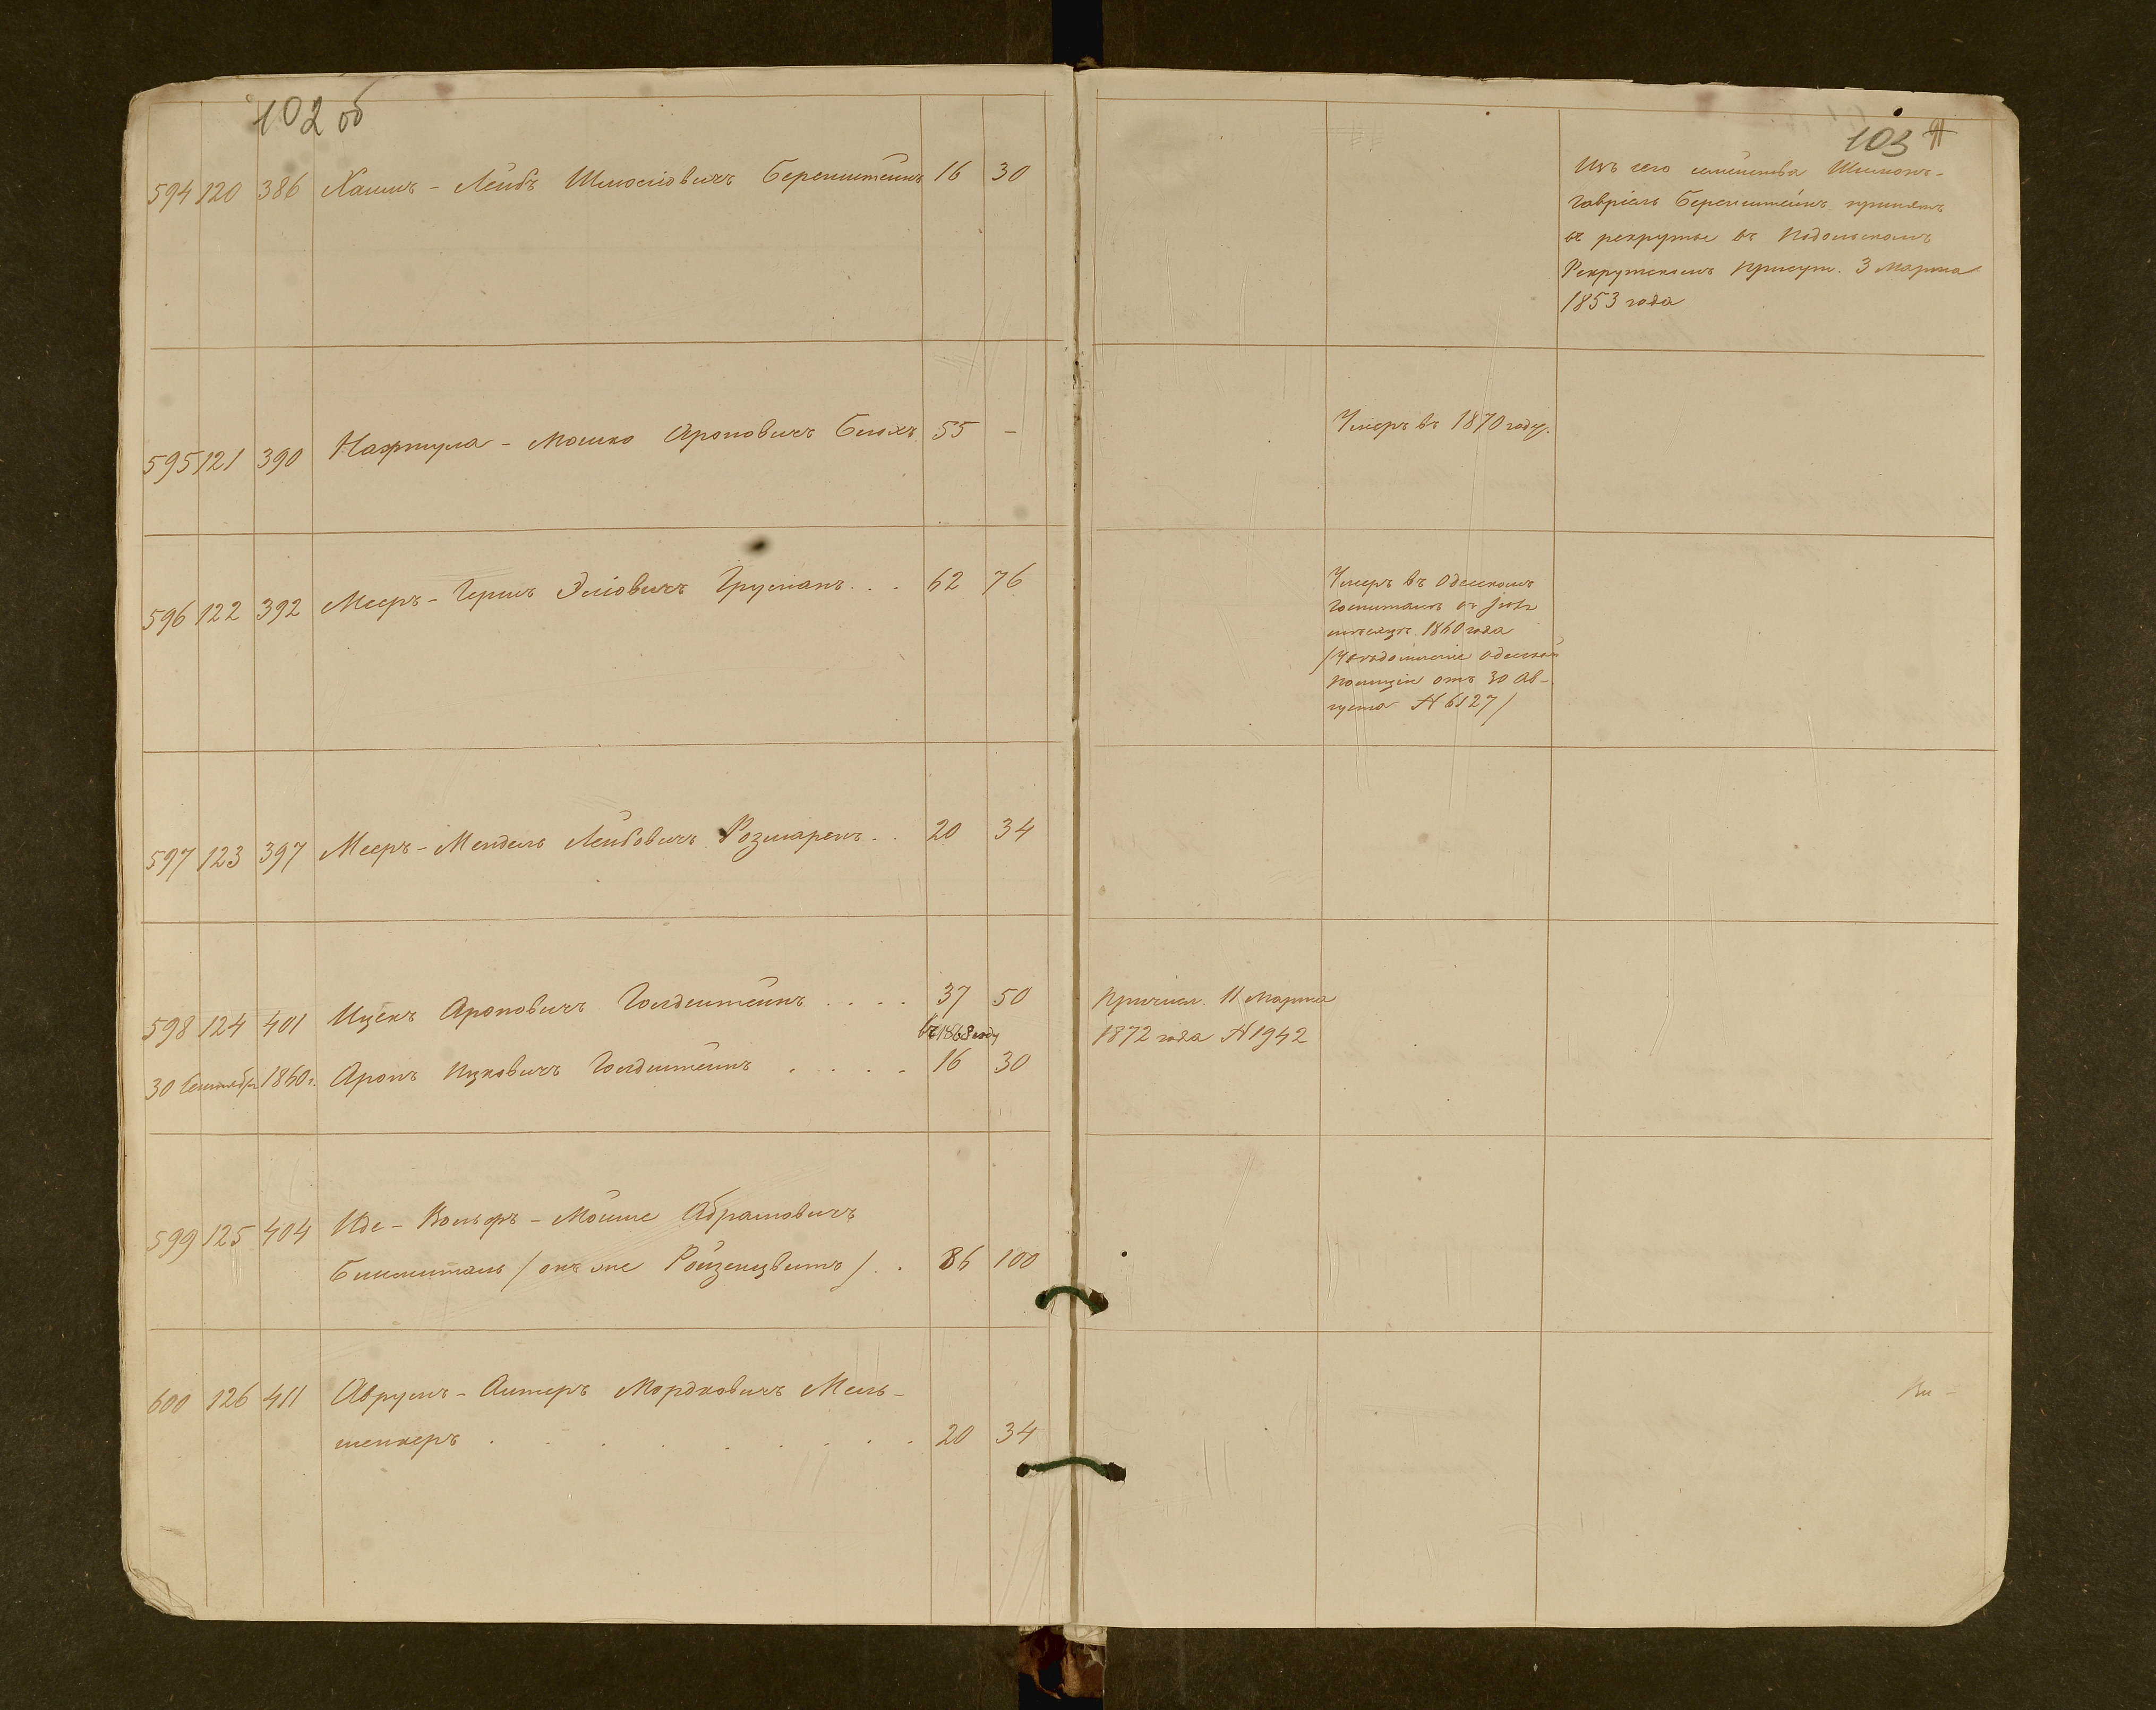 102 об
594 120 386 Хаимъ - Лейбъ Шмоліовичъ Беренштейнъ 16 30
595 121 390 Нафтула - Мошко Ароновичъ Блохъ 55 -
596 122 392 Мееръ - Гершъ Эліовичъ Грусманъ . . 62 76
597 123 397 Мееръ - Мендель Лейбовичъ Розмаренъ . . 20 34
598 124 401 Ицекъ Ароновичъ Голдештейнъ . . . . 37 50
въ 1868 году
30 Сентября 1860 г. Аронъ Ицковичъ Голдштейнъ . . . . 16 30
599 125 404 Иде - Вольфъ - Мойше Абрамовичъ
Блюменталь / онъ же Ройзенцвитъ / . . 86 100
600 126 411 Аврумъ - Алтеръ Мордковичъ Мель-
шенкеръ . . . . . . . . . 20 34
103
91
Изъ сего семейства Шимонъ-
Гавріель Беренштейнъ принятъ
въ рекруты въ Подольскомъ
Рекрутскомъ присут. 3 Марта
1853 года
Умеръ въ 1870 году.
Умеръ въ Одесскомъ
Госпиталѣ въ
мѣсяцѣ 1860 года
/Увѣдомленіе Одесской
Полиціи отъ 30 Ав-
густа N 6127/
Причисл. 11 Марта
1872 года N 1942